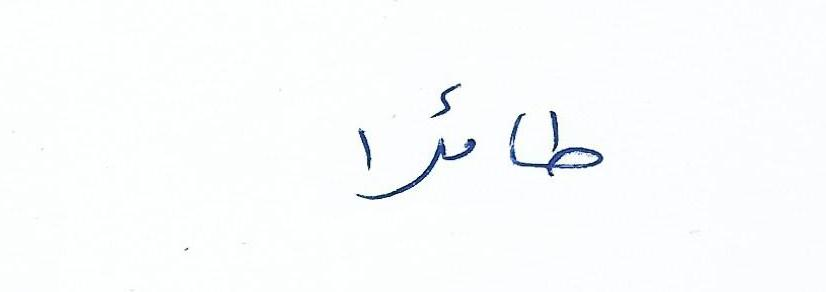 طائرا